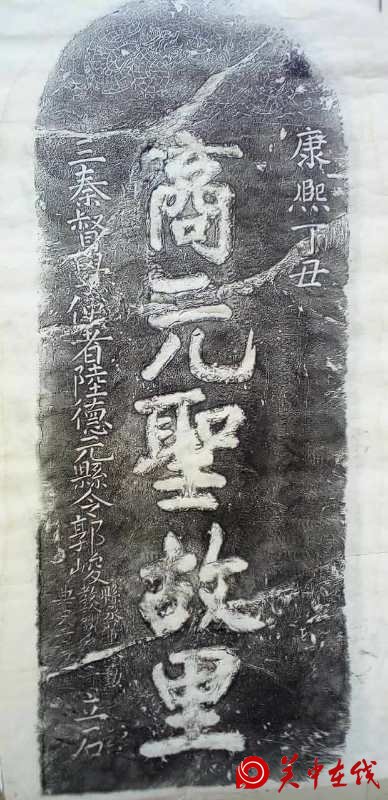 康熙丁丑
商元聖故里
三秦督學使者陸德元縣令郭峻
立石
关中在线